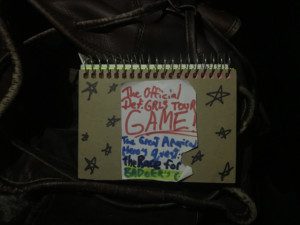 The Official
Def. GRLS TOUR
GAME!
The Great American
Hero's Quest:
The Race for